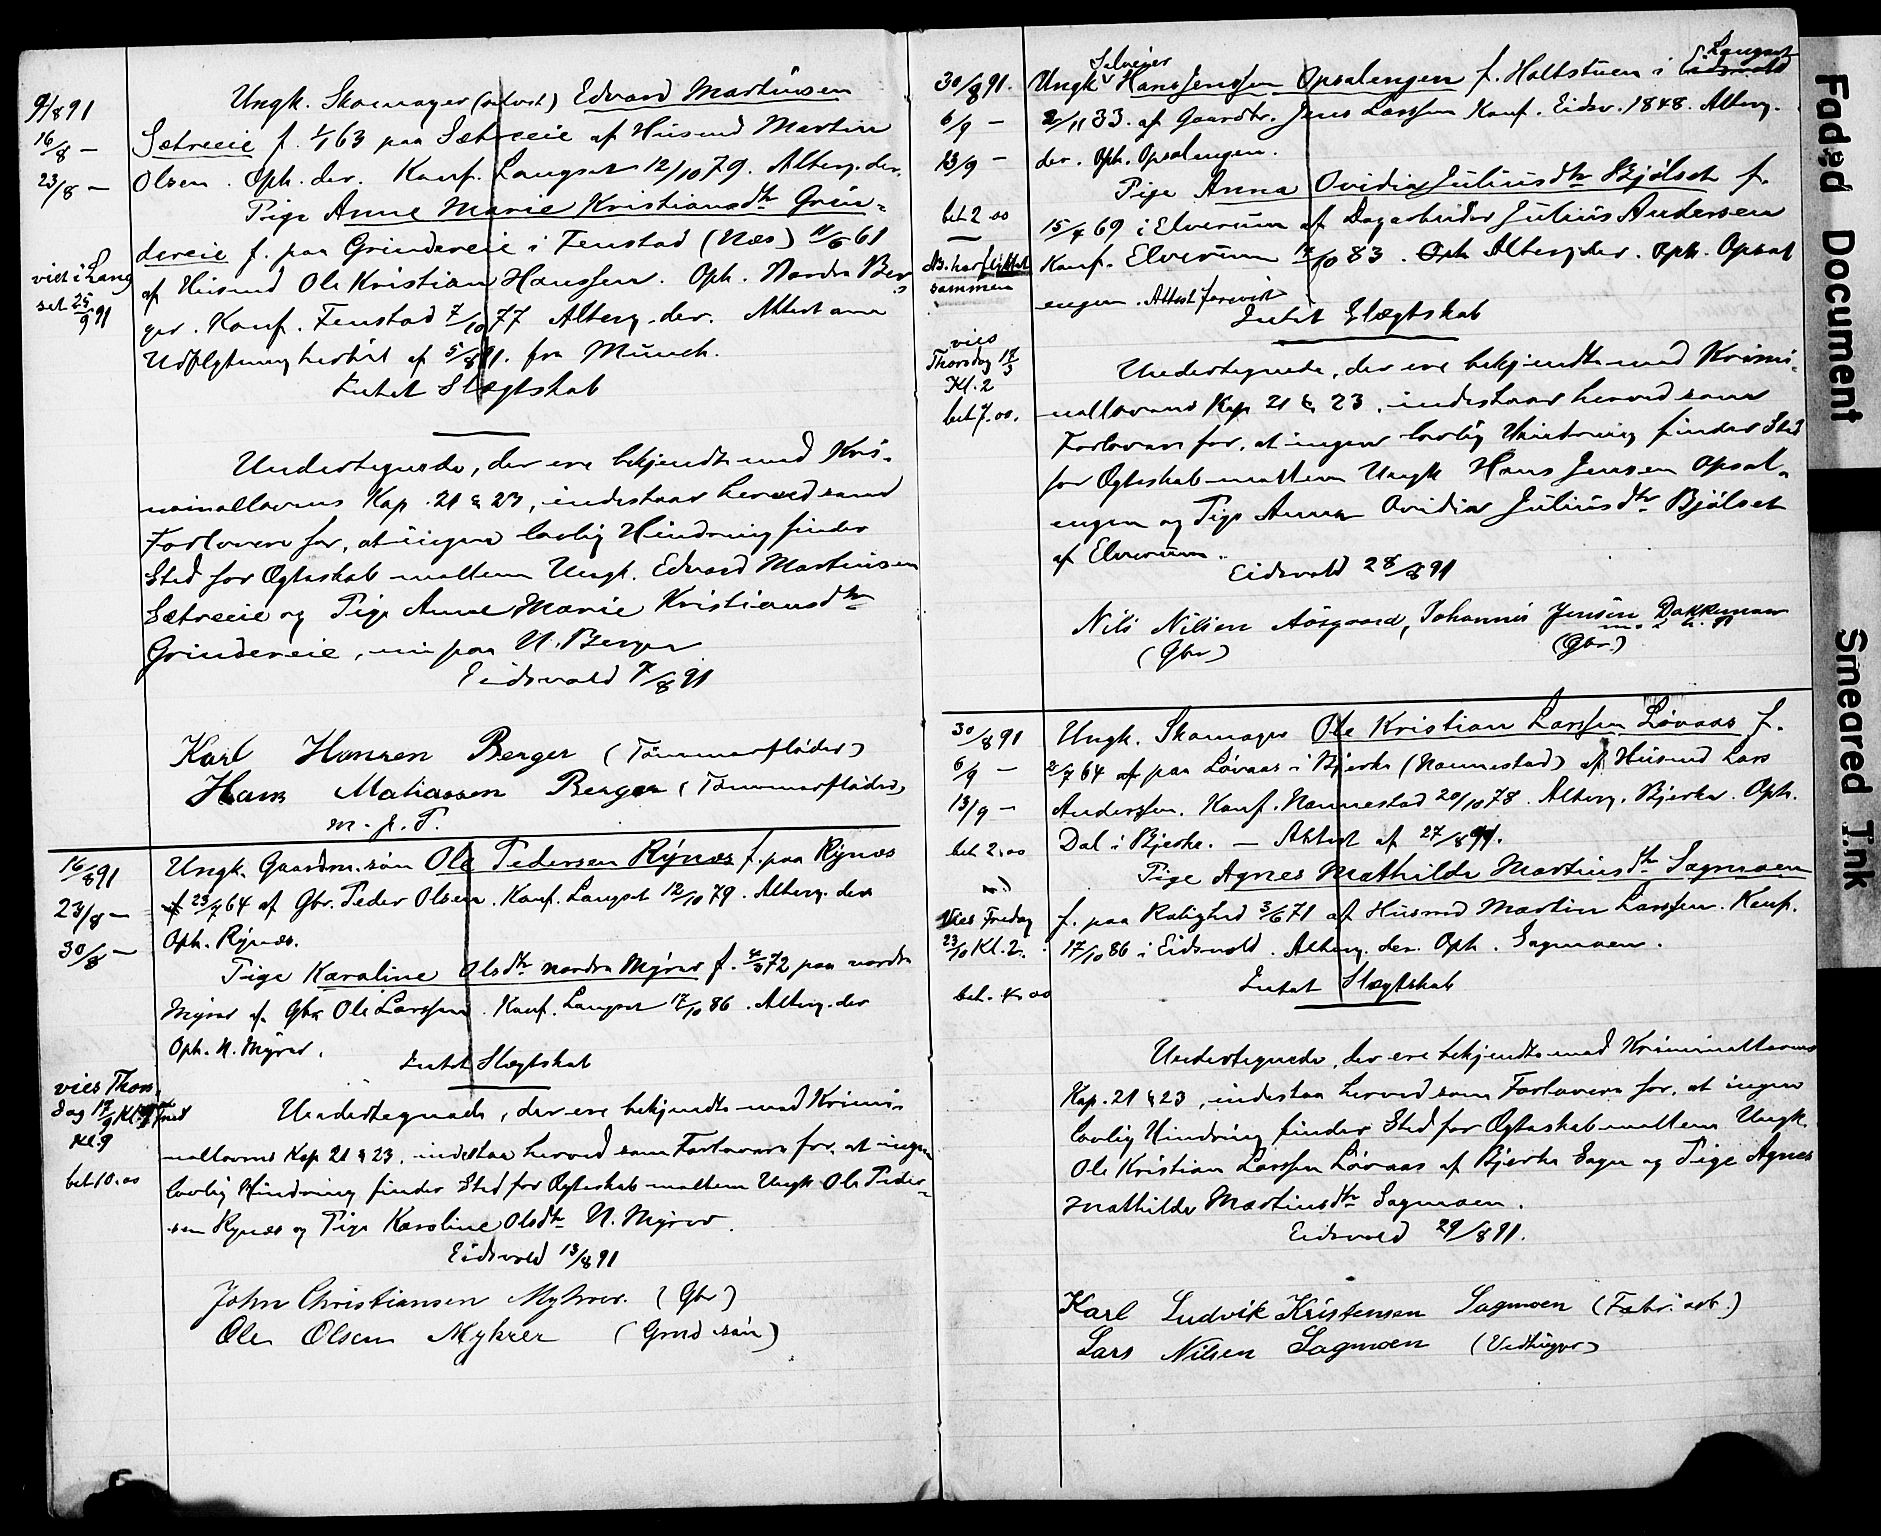 9/8 91
16/8 —
23/8 —
viet i Lang
set 25/9 91
Ungk. Skomager (enkest) Edvard Martinsen
Sætreeie f. 1/1 63 paa Sætreeie af Husmd Martin
Olsen. Oph. der. Konf. Langset 12/10 79. Alterg. der.
Pige Anne Marie Kristiansdtr Grin-
dereie f. paa Grindereie i Fenstad (Næs) 61
af Husmd Ole Kristian Hanssen. Oph. Nordre Ber-
ger. Konf. Fenstad 7/10 77 Alterg. der. Attest om
Udflytning hertil af 5/8 91. fra Munch.
Intet Slægtskab
Undertegnede, der ere bekjendte med Kri-
minallovens Kap. 21 & 23, indestaar herved som
Forlovere for, at ingen lovlig Hindring finder
Sted for Ægteskab mellem Ungk. Edvard Martinsen
Sætreeie og Pige Anne Marie Kristiansdtr
Grindereie, nu paa N. Berger
Eidsvold 7/8 91
Karl Hansen Berger (Tømmerfløder)
Hans Matiassen Berger (Tømmerfløder)
m. p. P.
16/8 91
23/8 —
30/8 —
vies Thors
dag 17/9 Kl.
Kl. 9
bet 10.00
Ungk. Gaardm. søn Ole Pedersen Rynæs f. paa Rynæs
23/7 64 af Gbr. Peder Olsen. Konf. Langset 12/10 79. Alterg. der
Oph. Rynæs.
Pige Karoline Olsdtr nordre Myrer f. 72 paa nordre
Myrer af Gbr Ole Larssen. Konf. Langset 17/10 86. Alterg. der
Oph. N. Myrer.
Intet Slægtskab
Undertegnede, der ere bekjendte med Krimi-
nallovens Kap 21 & 23, indestaa herved som Forlovere for, at ingen
lovlig Hindring finder Sted for Ægteskab mellem Ungk Ole Peder-
sen Rynæs og Pige Karoline Olsdtr N. Myrer.
Eidsvold 13/8 91
John Christiansen Myhrer. (Gbr)
Ole Olsen Myhrer (Grmd søn)
30/8 91.
6/9 —
13/9 —
bet 2.00
NB. har flyttet
sammen
vies
Thorsdag 17/
Kl. 2
bet 7.00.
Selveier Langset
Ungk Hans Jenssen Opsalengen f. Holtstuen i Eidsvold
2/11 33. af Gaardbr. Jens Larssen Konf. Eidsv. 1848. Alterg.
der. Oph. Opsalengen.
Pige Anna Ovidia Juliusdtr Bjølset f.
15/4 69 i Elverum af Dagarbeider Julius Andersen
Konf. Elverum /10 83. Oph Alterg. der. Oph. Opsal
engen. Attest forevist
Intet Slægtskab
Undertegnede, der ere bekjendte med Krimi-
nallovens Kap 21 & 23, indestaar herved som
Forlovere for, at ingen lovlig Hindring finder Sted
for Ægteskab mellem Ungk Hans Jensen Opsal-
engen og Pige Anna Ovidia Juliusdtr Bjølset
af Elverum.
Eidsvold 28/8 91
Nils Nilsen Aasgaard, Johannes Jensen Bakkemoen
(Gbr) (Gbr.)
30/8 91
6/9 —
13/9 —
bet 2.00
Vies Fredag
23/10 Kl. 2.
bet. 4.00
Ungk. Skomager Ole Kristian Larssen Løvaas f.
2/7 64 paa Løvaas i Bjerke (Nannestad) af Husmd Lars
Anderssen. Konf. Nannestad 20/10 78. Alterg. Bjerke. Oph.
Dal i Bjerke. — Attest af 27/8 91.
Pige Agnes Mathilde Martinsdtr Sagmoen
f. paa Rolighed 3/6 71 af Husmd Martin Larssen. Konf.
17/10 86 i Eidsvold. Alterg. der. Oph. Sagmoen.
Intet Slægtskab
Undertegnede, der ere bekjendte med Kriminallovens
Kap. 21 & 23, indestaa herved som Forlovere for, at ingen
lovlig Hindring finder Sted for Ægteskab mellem Ungk.
Ole Kristian Larssen Løvaas af Bjerke Sogn og Pige Agnes
Mathilde Martinsdtr Sagmoen.
Eidsvold 29/8 91.
Karl Ludvik Kristensen Sagmoen (Fabr. arb.)
Lars Nilsen Sagmoen (Vedhugger)
Faded Document
Smeared Ink